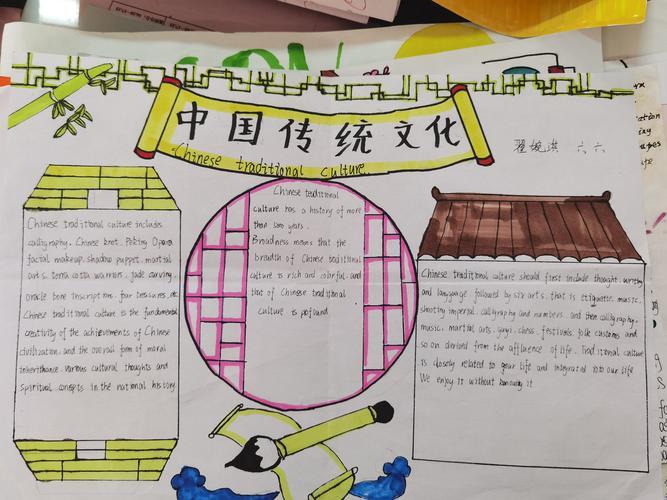 中国传统文化
Chinese traditional culture.
翟婉淇 六六
Chinese traditional culture includes
calligraphy. Chinese knot. Peking Opera
facial makeup. shadow puppet. martial
arts. terra cotta warriors. jade carving.
oracle bone inscription. four treasures. etc
Chinese traditional culture is the fundamental
creativity of the achievements of Chinese
civilization. and the overall form of moral
inheritance. various cultural thoughts and
spiritual consepts in the national history.
Chinese traditional
culture has a history of more
than years.
Broadness means that the
breadth of Chinese traditional
culture is rich and colorful. and
that of Chinese traditional
culture is profound
Chinese traditional culture should first include thought. writing
and language followed by six arts. that is etiquette. music.
shooting imperial. calligraphy and numbers. and then calligraphy.
music. martial arts. chess. festivals. folk customs and
so on derived from the affluence of life. Traditional culture
is closely related to your life and integrated into our life
We enjoy it without it